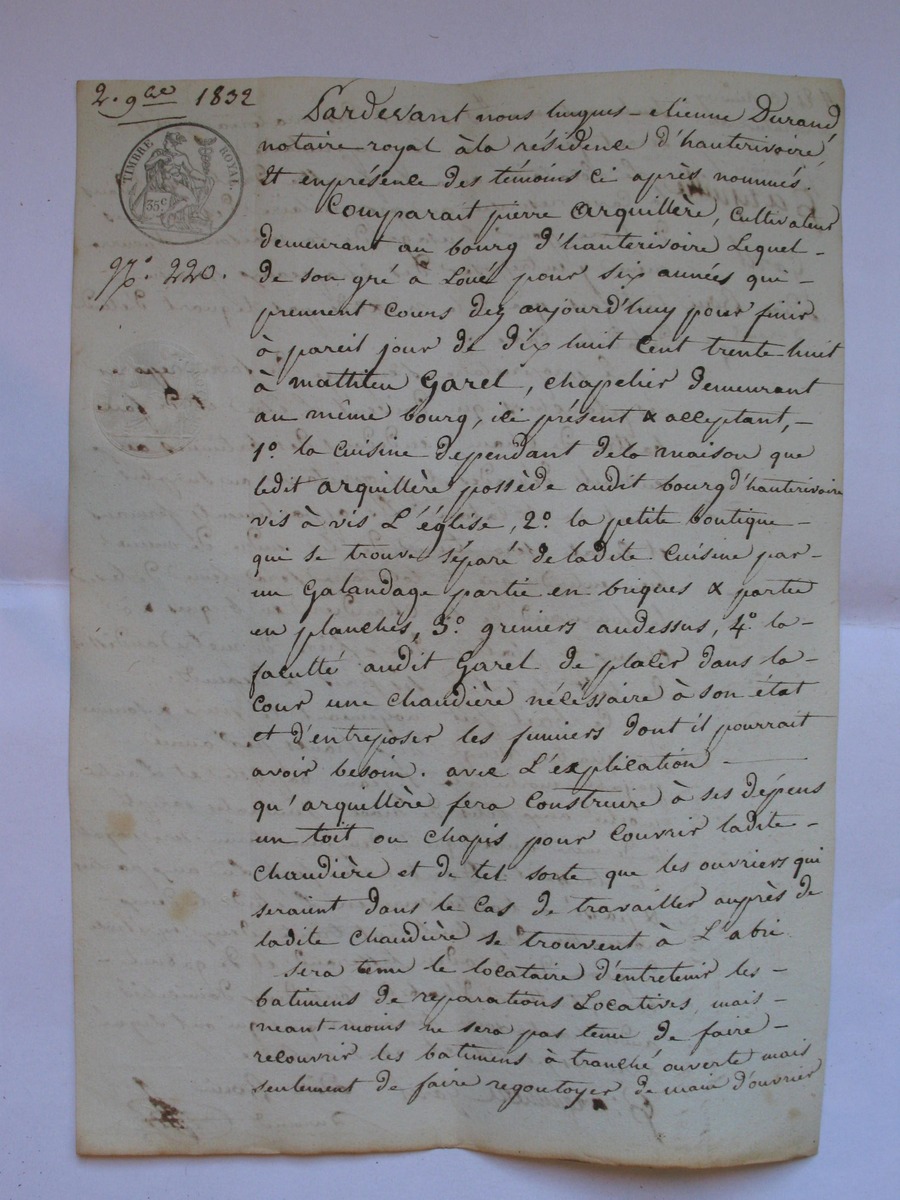 2. 9bre 1832
TIMBRE ROYAL
35c
N° 220.
Pardevant nous hugues-etienne Durand
notaire royal à la résidence d'hauterivoire
Et en présence des témoins ci après nommés.
Comparait pierre arquillère, cultivateur
demeurant au bourg d'hauterivoire Lequel -
de son gré à Loué pour six années qui -
prennent cours dez aujourd'huy pour finir
à pareil jour de dix huit cent trente huit
à mathieu Garel, chapelier demeurant
au même bourg, ici présent & acceptant, -
1° la cuisine dependant de la maison que
ledit arquillère possède audit bourg d'hauterivoire
vis à vis L'église, 2° la petite boutique -
qui se trouve séparé de ladite cuisine par -
un Galandage partie en briques & partie
en planchés, 3° greniers audessus, 4° la -
faculté audit Garel de placer dans la -
cour une chaudière nécessaire à son état
et d'entreposer les fumiers dont il pourrait
avoir besoin. avec L'explication -
qu'arquillère fera construire à ses dépens
un toit ou chapis pour couvrir ladite -
chaudière et de tel sorte que les ouvriers qui
seraient dans le cas de travailler auprès de
ladite chaudière se trouvent à L'abri
sera tenu le locataire d'entretenir les -
batimens de reparations Locatives, mais -
neant-moins ne sera pas tenu de faire -
recouvrir les batimens à tranché ouverte mais
seulement de faire regoutoyer de main d'ouvrier